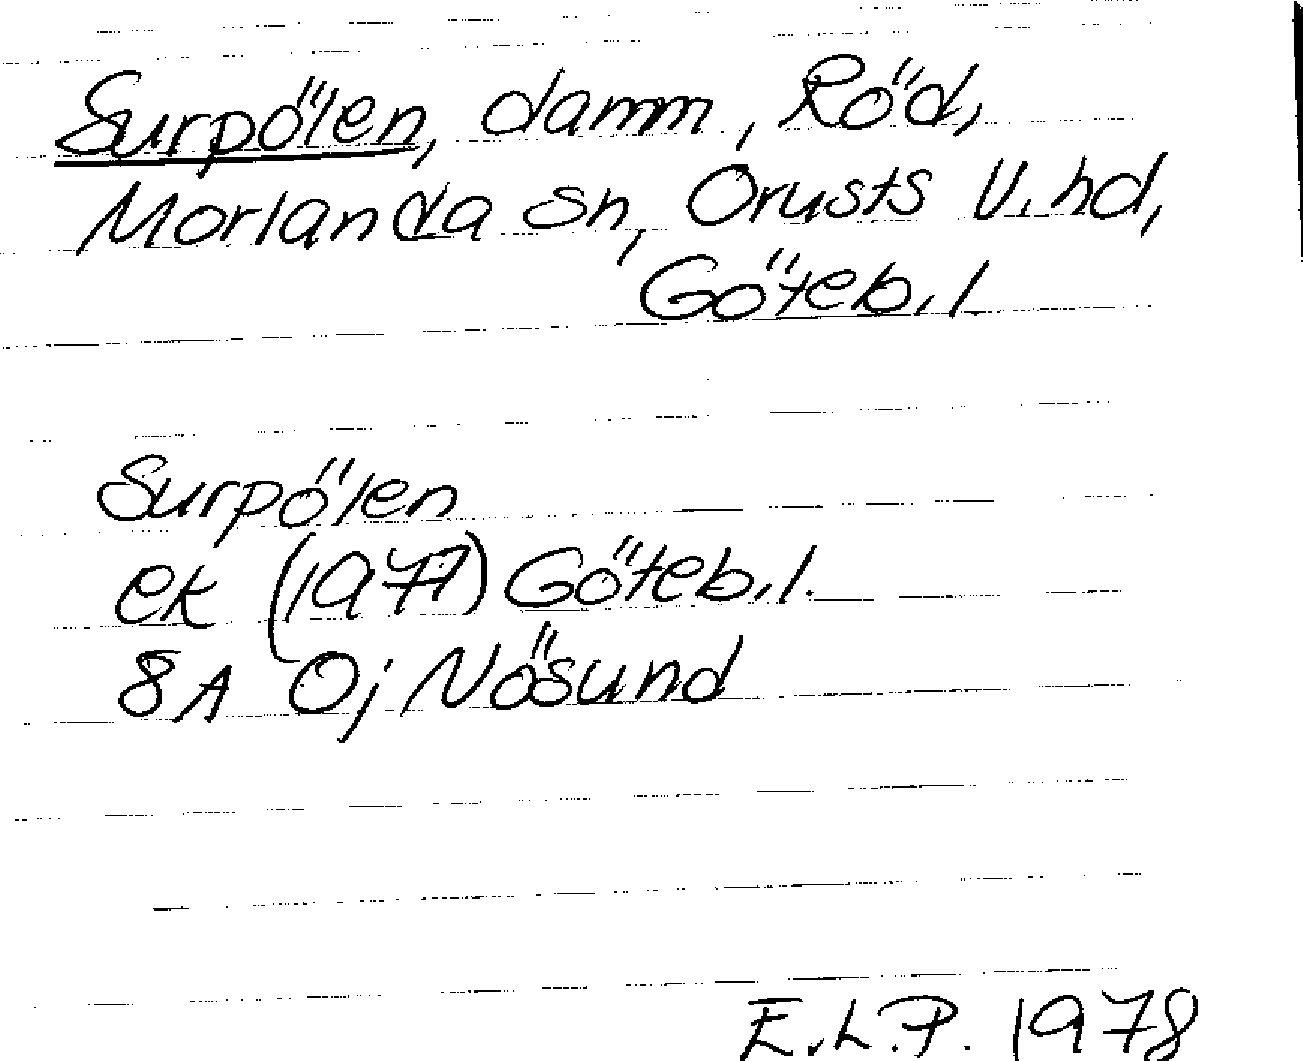 Surpölen, damm, Röd,
Morlanda sn, Orusts V. hd,
Göteb. l
Surpölen
ek (1977) Göteb. l.
8A Oj Nösund
E.L.P. 1978